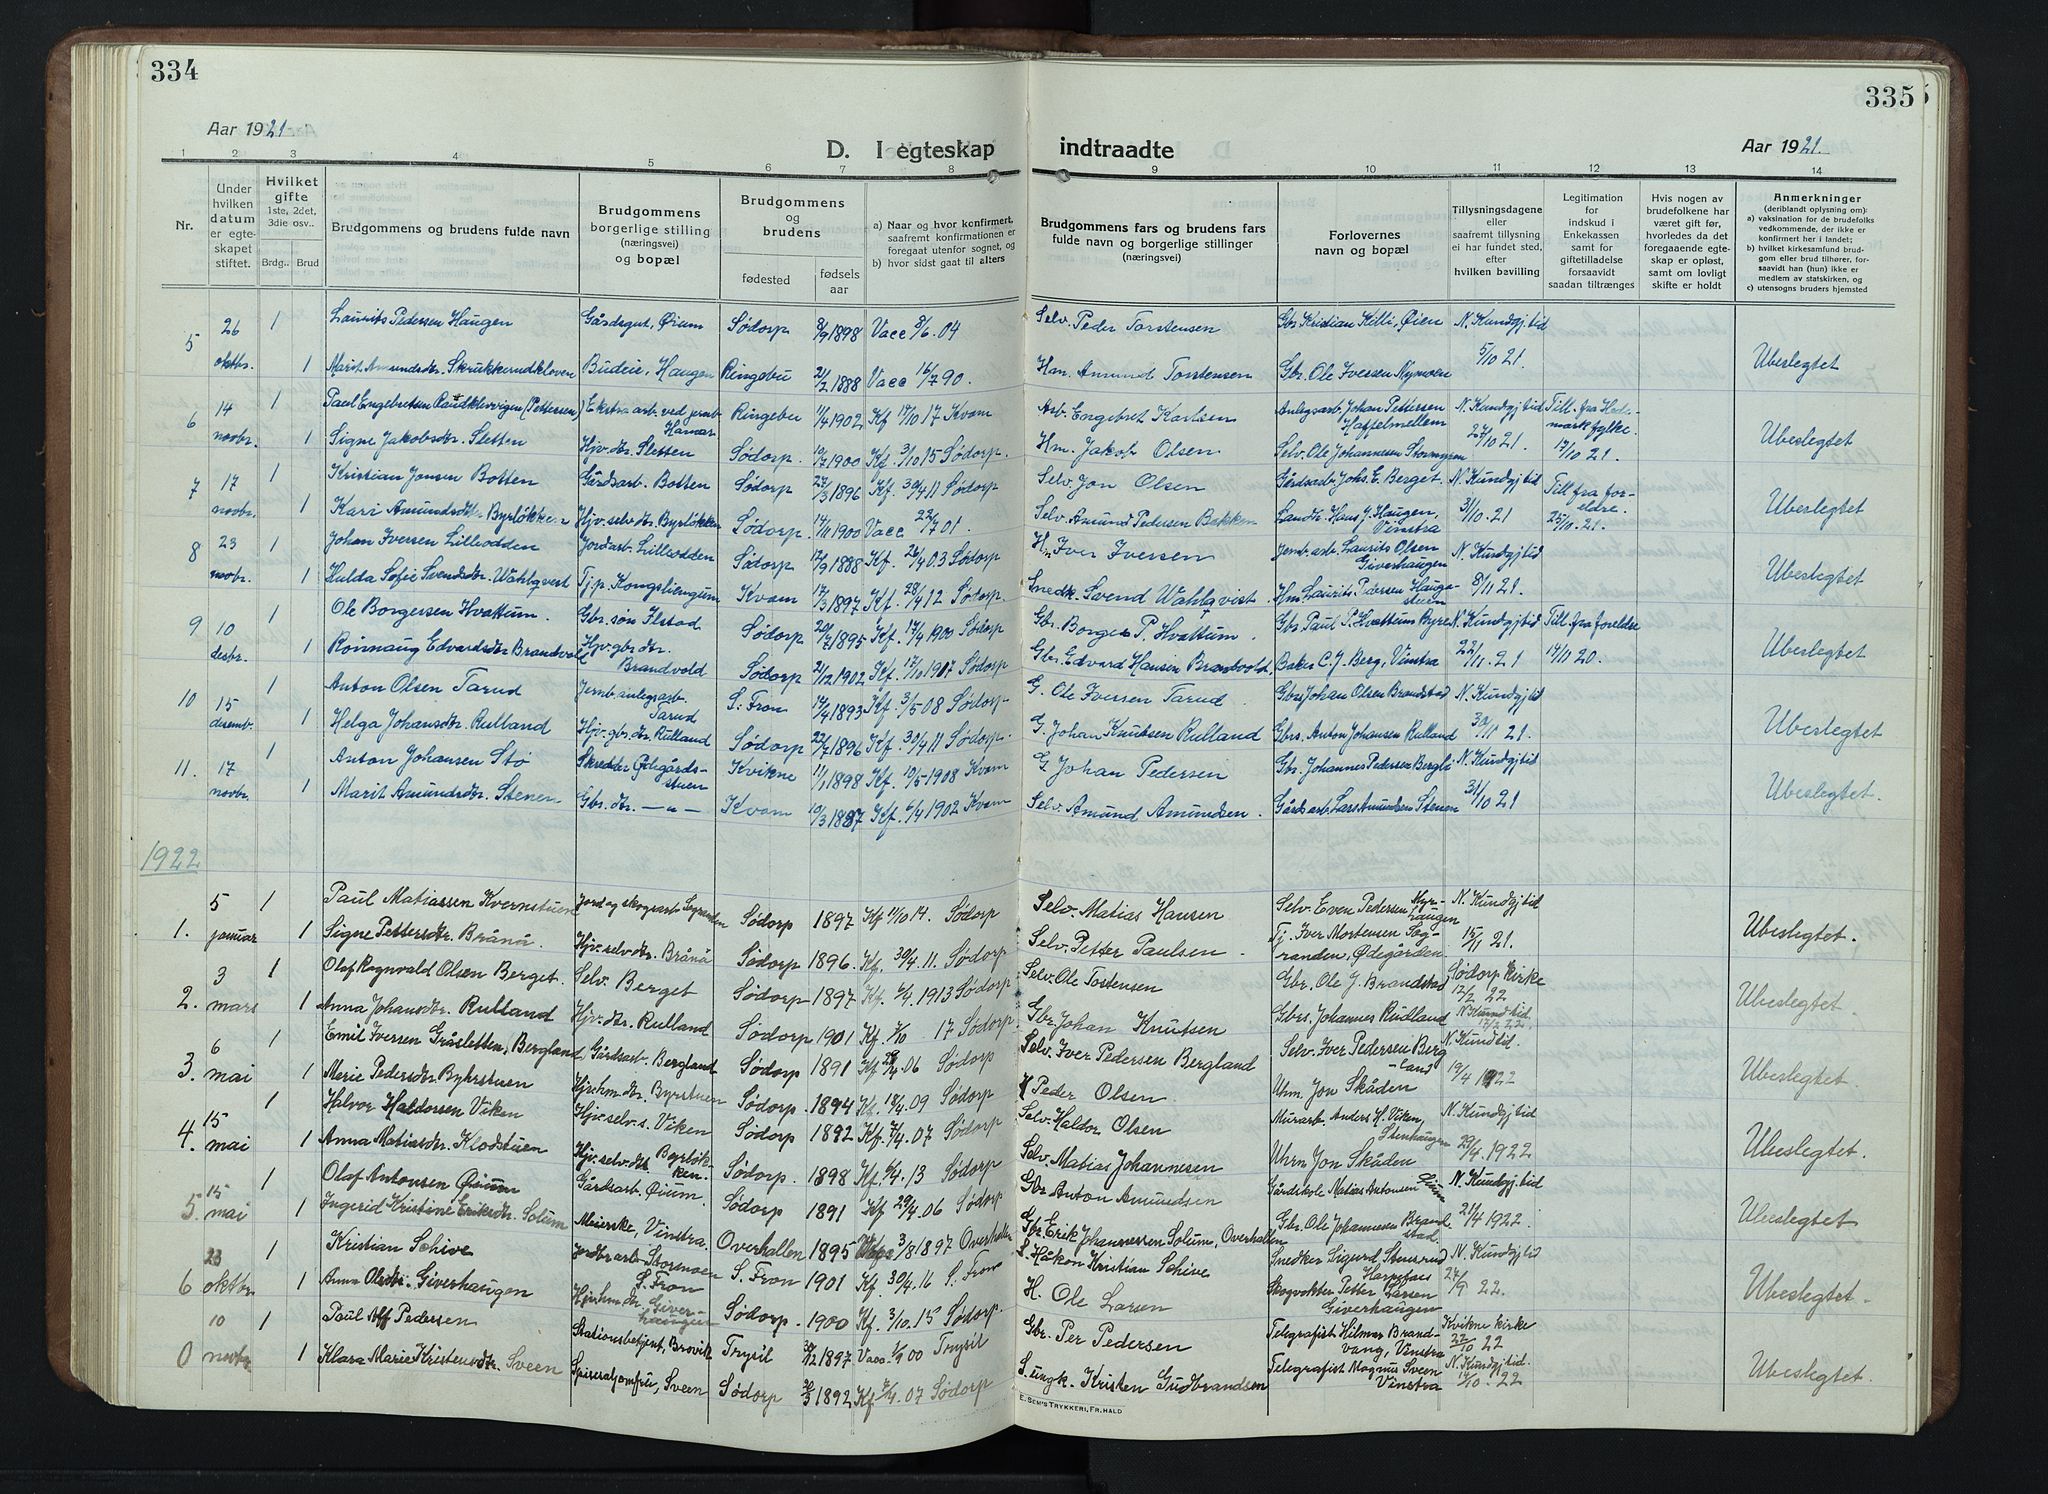 334
335
Aar 1921
D. I egteskap
indtraadte
Aar 1921.
1 2 3 4 5 6 7 8 9 10 11 12 13 14
Nr.
Under hvilken datum er egteskapet stiftet.
Hvilket gifte
1ste, 2det, 3die osv..
Brdg.. Brud
Brudgommens og brudens fulde navn
Brudgommens borgerlige stilling (næringsvei) og bopæl
Brudgommens og brudens
fødested
fødsels aar
a) Naar og hvor konfirmert, saafremt konfirmationen er foregaat utenfor sognet, og
b) hvor sidst gaat til alters
Brudgommens fars og brudens fars fulde navn og borgerlige stillinger (næringsvei)
Forlovernes navn og bopæl
Tillysningsdagene eller saafremt tillysning ei har fundet sted, efter hvilken bevilling
Legitimation for indskud i Enkekassen samt for giftetilladelse forsaavidt saadan tiltrænges
Hvis nogen av brudefolkene har været gift før, hvorledes da det foregaaende egteskap er opløst, samt om lovligt skifte er holdt
Anmerkninger (deriblandt oplysning om):
a) vaksination for de brudefolks vedkommende, der ikke er konfirmert her i landet;
b) hvilket kirkesamfund brudgom eller brud tilhører, forsaavidt han (hun) ikke er medlem av statskirken, og
c) utensogns bruders hjemsted
5 26 oktbr. 1 Laurits Pedersen Haugen Gårdsgut, Øium Sødorp 8/9 1898 Vacc 8/6.04 Selv. Peder Torstensen Gbr Kristian Killi, Øien N. Kundgj tid 5/10 21. Ubeslegtet
1 Marit Amundsdtr. Skrukkerudkleven Budeie, Haugen Ringebu 21/2 1888 Vacc 16/7 90. Hm. Amund Torstensen Gbr. Ole Iversen Nymoen
6 14 novbr. 1 Paul Engebretsen Raudklevvigen (Pettersen) Ekstraarb. ved jernb. Hamar Ringebu 11/4 1902 Kf 14/10 17 Kvam Arb. Engebret Karlsen Anlegsarb. Johan Pettersen N. Kundgj tid 27/10 21. Till. fra Hedmark fylke. 17/10 21. Ubeslegtet
1 Signe Jakobsdtr. Sletten Hjv. dtr. Sletten Sødorp. 19/7 1900 Kf. 3/10 15 Sødorp. Hm. Jakob Olsen Selv. Ole Johannesen Stormyren
7 17 novbr. 1 Kristian Jonsen Botten Gårdsarb. Botten Sødorp 27/3 1896 Kf. 30/4 11 Sødorp Selv. Jon Olsen Gårdsarb Johs. E. Berget. N. Kundgj tid 31/10. 21 Till fra foreldre. 25/10. 21. Ubeslegtet
1 Kari Amundsdtr Byrløkken Hjv. selv. dtr. Byrløkken Sødorp. 14/11 1900 Vacc 22/7 01. Selv. Amund Pedersen Bakken Landh. Hans J. Haugen, Vinstra
8 23 novbr. 1 Johan Iversen Lilleodden Jordarb. Lilleodden Sødorp 12/9 1888 Kf. 26/4 03 Sødorp Hm Iver Iversen Jernb. arb. Laurits Olsen Giverhaugen N. Kundgj tid 8/11 21. Ubeslegtet
1 Hulda Sofie Svendsdtr. Wahlqvist Tj. p. Kongsliengum Kvam 17/3 1897 Kf. 28/4 12 Sødorp. Snedk. Svend Wahlqvist. Hm. Laurits Pedersen Haugastuen
9 10 desbr. Ole Borgersen Hvattum. Gbr. søn Ilstad Sødorp 20/7 1895 Kf. 17/4 1900 Sødorp Gbr. Borger P. Hvattum. Gbr. Paul P. Hvattum Byre N. Kundgj tid 22/11. 21 Till fra foreldre 14/11 20. Ubeslegtet
1 Rønnaug Edvardsdtr Brandvold Hjv. gbr. dtr. Brandvold Sødorp 21/12 1902 Kf. 17/10 1917 Sødorp Gbr. Edvard Hansen Brandvold. Baker C. J. Berg, Vinstra
10 15 desemb. 1 Anton Olsen Tarud Jernb. anlegsarb. Tarud S. Fron 14/4 1893 Kf. 3/5 08 Sødorp G. Ole Iversen Tarud Gbr. Johan Olsen Brandstad N. Kundgj tid 30/11 21. Ubeslegtet
1 Helga Johansdtr. Rulland Hjv. gbr. dtr. Rulland Sødorp 22/7 1896 Kf. 30/4 11 Sødorp. G. Johan Knutsen Rulland Gbrs. Anton Johansen Rulland
11. 17 novbr. 1 Anton Johansen Stø Skredder Ødegårdsstuen Kvikne 11/1 1898 Kf. 10/5-1908 Kvam G Johan Pedersen Gbr. Johannes Pedersen Bergli N. Kundgj tid 31/10 21 Ubeslegtet.
1 Marit Amundsdtr. Stenen Gbr. dtr. — " — Kvam 10/3 1887 Kf. 6/4 1902 Kvam Selv. Amund Amundsen. Gårdsarb. Lars Amundsen Stenen
1922
1. 5 januar 1 Paul Matiassen Kvernstuen Jord og skogsarb. Sogranden Sødorp 1897 Kf 11/10 14. Sødorp Selv. Matias Hansen Selv. Even Pedersen Myrhaugen N. Kundgj tid 15/11 21. Ubeslegtet.
1 Signe Pettersdtr. Brånå. Hjv. selv. dtr. Brånå Sødorp 1896. Kf. 30/4. 11. Sødorp Selv. Petter Paulsen. Tj. Iver Mortensen Sogranden, Ødegården
2. 3 mars 1 Olaf Ragnvald Olsen Berget. Selv. Berget Sødorp 1897 Kf. 6/4. 1913 Sødorp Selv. Ole Tostensen Gbr. Ole J. Brandstad Sødorp kirke 12/2 22 Ubeslegtet
1 Anna Johansdtr. Rulland Hjv. dtr. Rulland Sødorp 1901 Kf. 7/10 17 Sødorp. Gbr. Johan Knutsen Gbrs. Johannes Rudland N. Kund. tid. 17/2 22.
3. 6 mai 1 Emil Iversen Gråsletten, Bergland Gårdsarb. Bergland Sødorp 1891 Kf 29/4. 06 Sødorp Selv. Iver Pedersen Bergland Selv. Iver Pedersen Bergland N. Kund tid. 19/4 1922 Ubeslegtet.
1 Marie Pedersdtr. Byhrstuen Hjv. hm. dtr. Byrstuen Sødorp. 1894 Kf. 18/4. 09 Sødorp H Peder Olsen. Uhm. Jon Skåden
4. 15 mai 1 Halvor Haldorsen Viken Hjv. selv. s. Viken Sødorp 1892 Kf. 7/4. 07 Sødorp Selv. Haldor Olsen Murarb. Anders H. Viken, Stenhaugen N. Kundgj tid 29/4. 1922 Ubeslegtet.
1 Anna Matiasdtr. Klodstuen Hjv. selv. dtr. Byrløkken. Sødorp. 1898 Kf. 6/4. 13 Sødorp Selv. Matias Johannesen Uhm Jon Skåden
5. 15 mai 1 Olaf Antonsen Øium Gårdsarb. Øium. Sødorp 1891 Kf 29/4. 06 Sødorp Gbr Anton Amundsen Gårdskole Matias Antonsen Øium N. Kundgj. tid 27/4 1922. Ubeslegtet
1 Ingerid Kristine Eriksdtr. Solum Meierske, Vinstra. Overhallen 1895 3/8 1897 Overhallen Gbr. Erik Johannessen Solum, Overhallen Gbr. Ole Johannesen Brandstad.
6 23 oktbr. 1 Kristian Schive Jordbr. arb. Stormoen S. Fron S. Fron 1901 Kf. 30/4. 16 S. Fron S. Håkon Kristian Schive Snedker Sigurd Stensrud Harpefoss N. Kundgj tid 27/9 22. Ubeslegtet.
1 Anna Olsdtr. Giverhaugen Hjv. hm. dtr. Giverhaugen Sødorp. 1900 Kf. 3/10. 15 Sødorp H. Ole Larsen Skogvokter Petter Larsen Giverhaugen
0 10 novbr 1 Paul Alf Pedersen Stationsbetjent, Brovik Trysil 20/12 1897 Vacc. 1/9 00 Trysil Gbr. Per Pedersen Telegrafist Hilmar Brandvang, Vinstra Kvikne kirke 22/10 22 Ubeslegtet.
1 Klara Marie Kristensdtr. Sveen Spiseraljomfru, Sveen Sødorp 20/3 1892 Kf 7/4. 07 Sødorp S. ungk. Kristen Gudbrandsen Telegrafist Magnus Sveen Vinstra N. Kundgj tid. 14/10. 22
E. SEM'S TRYKKERI, FR. HALD